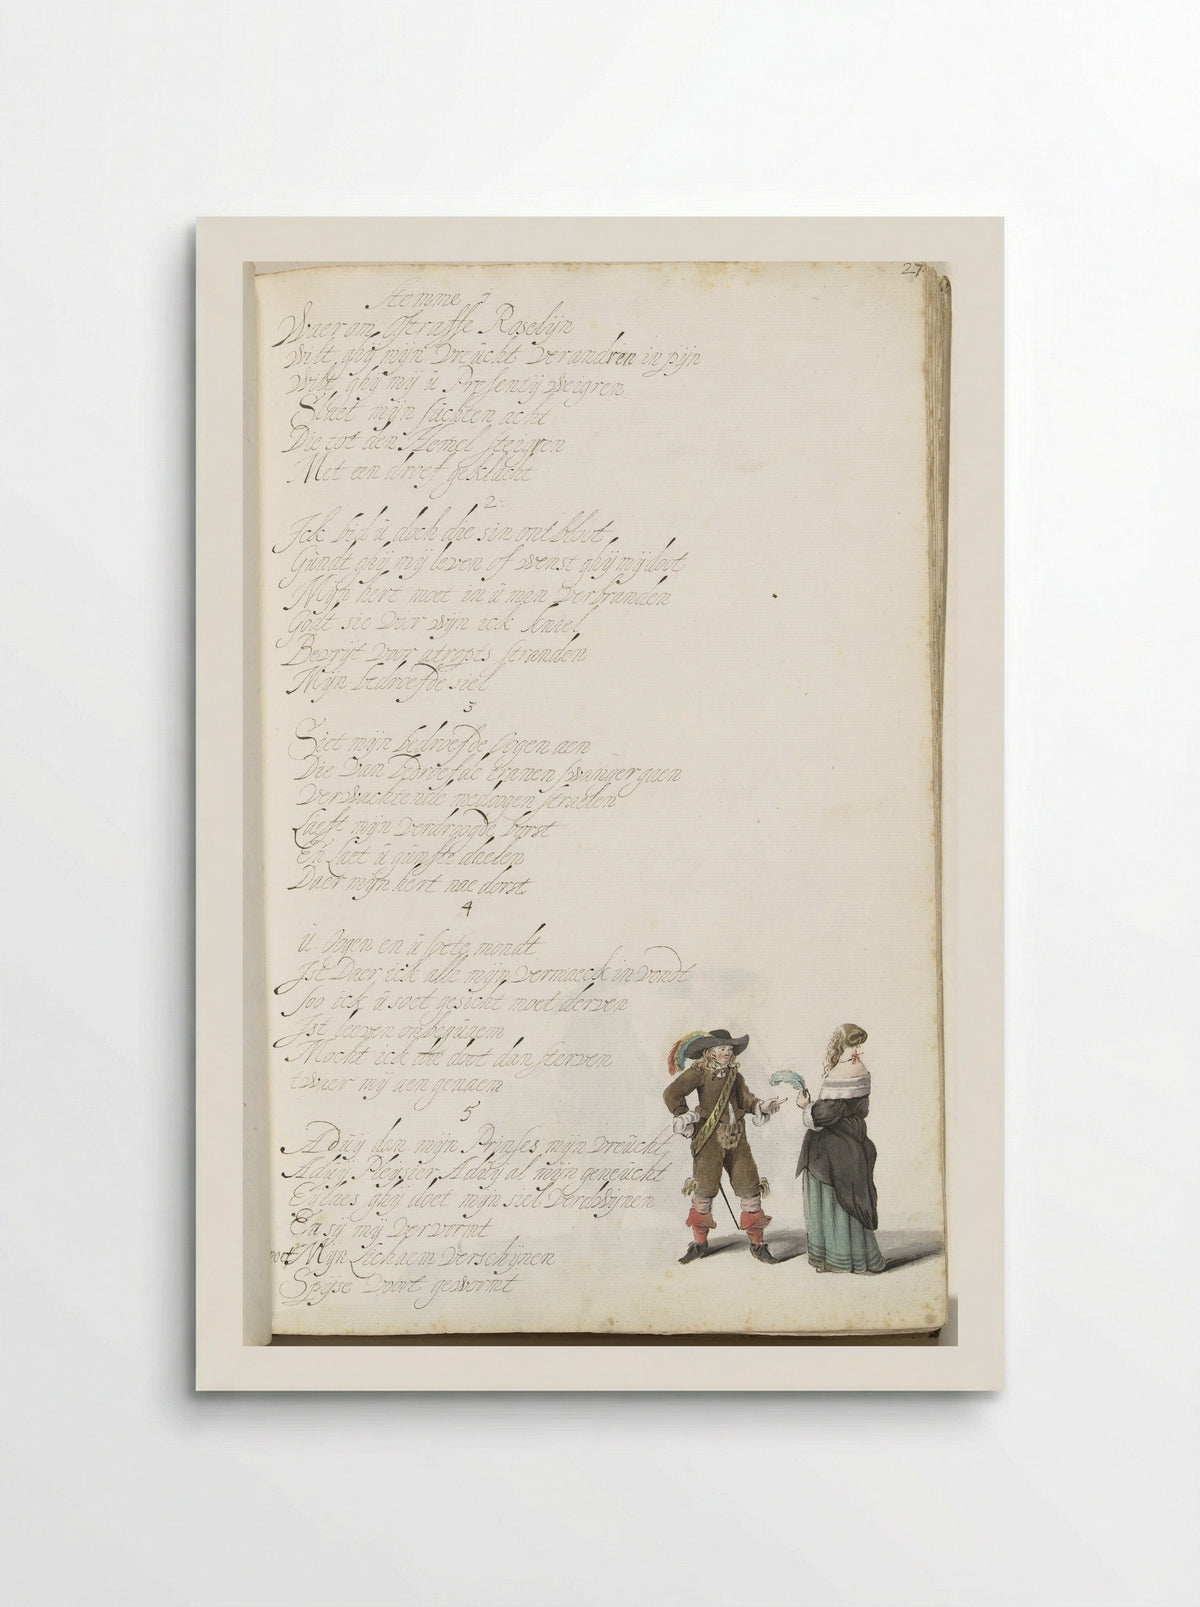 27
Stemme
Waerom Straffe Roselijn
Wilt ghij mijn Vreücht Verandren in pijn
Wilt ghij mij ü Presentij Weigren
Slaet mijn süchten acht
Die tot den Hemel steigren
Met een droef geklacht
2:
Ick bid ü doch die sin ontbloot
Gündt ghij mij leven of wenst ghij mij doot
Mijn hert moet in ü min Verbranden
Godt sie Voor Wijn ick kniel
Bevrijt Voor atropts stranden
Mijn bedroefde siel
3
Siet mijn bedroefde Oogen aen
Die Van bedroefde tranen swanger gaen
Verwachtende medoogen straelen
Laeft mijn Verdroogde borst
En Laet ü günste daelen
Daer mijn hert nae dorst
4
ü Oogen en ü soete mondt
Ist Daer ick alle mijn Vermaeck in Vondt
Soo ick ü soet gesicht moet derven
Ist leeven onbequaem
Mocht ick die doot dan sterven
twaer mij aengenaem
5
Adüij dan mijn Prinses mijn Vreücht
Adüij Pleysier Adüij al mijn geneücht
Eylaes ghij doet mijn siel Verdwijnen
En sij mij Vervormt
Mijn Lichaem Verschijnen
Spijse Voort gewormt